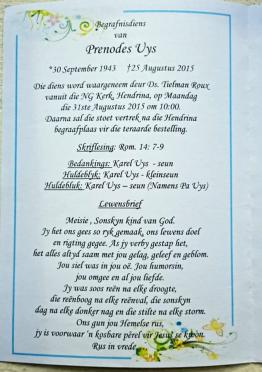 Begrafnisdiens
van
Prenodes Uys
*30 September 1943 †25 Augustus 2015
Die diens word waargeneem deur Ds. Tielman Roux
vanuit die NG Kerk, Hendrina, op Maandag
die 31ste Augustus 2015 om 10:00.
Daarna sal die stoet vertrek na die Hendrina
begraafplaas vir die teraarde bestelling.
Skriflesing: Rom. 14: 7-9
Bedankings: Karel Uys - seun
Huldeblyk: Karel Uys - kleinseun
Huldebluk: Karel Uys – seun (Namens Pa Uys)
Lewensbrief
Meisie, Sonskyn kind van God.
Jy het ons gees so ryk gemaak, ons lewens doel
en rigting gegee. As jy verby gestap het,
het alles altyd saam met jou gelag, geleef en geblom.
Jou siel was in jou oë. Jou humorsin,
jou omgee en al jou liefde.
Jy was soos reën na elke droogte,
die reënboog na elke reënval, die sonskyn
dag na elke donker nag en die stilte na elke storm.
Ons gun jou Hemelse rus,
jy is voorwaar 'n kosbare pêrel vir Jesus se kroon.
Rus in vrede